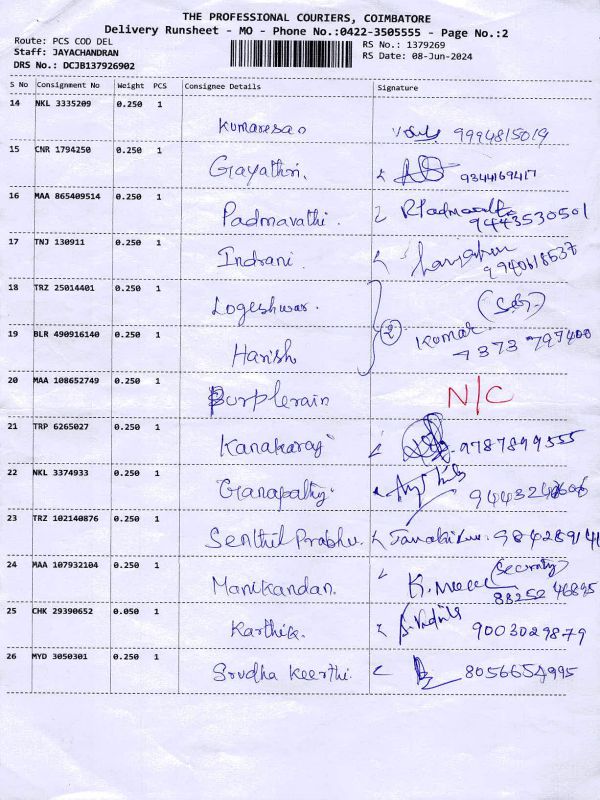 THE PROFESSIONAL COURIERS, COIMBATORE
Delivery Runsheet - MO - Phone No.:0422-3505555 - Page No.:2
Route: PCS COD DEL
Staff: JAYACHANDRAN
DRS No.: DCJB137926902
RS No.: 1379269
RS Date: 08-Jun-2024
S No Consignment No Weight PCS Consignee Details Signature
14 NKL 3335209 0.250 1
Kumaresan 9994815019
15 CNR 1794250 0.250 1
Gayathri. 9344169417
16 MAA 865409514 0.250 1
Padmavathi. 9443530501
17 TNJ 130911 0.250 1
Indrani. 9940618537
18 TRZ 25014401 0.250 1
Logeshwar.
19 BLR 490916140 0.250 1
Harish
2 Kumar
7373 797400
20 MAA 108652749 0.250 1
Purplerain N/C
21 TRP 6265027 0.250 1
Kanakaraj 9787899555
22 NKL 3374933 0.250 1
Ganapathy.
23 TRZ 102140876 0.250 1
Senthil Prabhu.
24 MAA 107932104 0.250 1
Manikandan. (Security)
88252 46895
25 CHK 29390652 0.050 1
Karthik. 9003029879
26 MYD 3050301 0.250 1
Srudha Keerthi. 8056654995